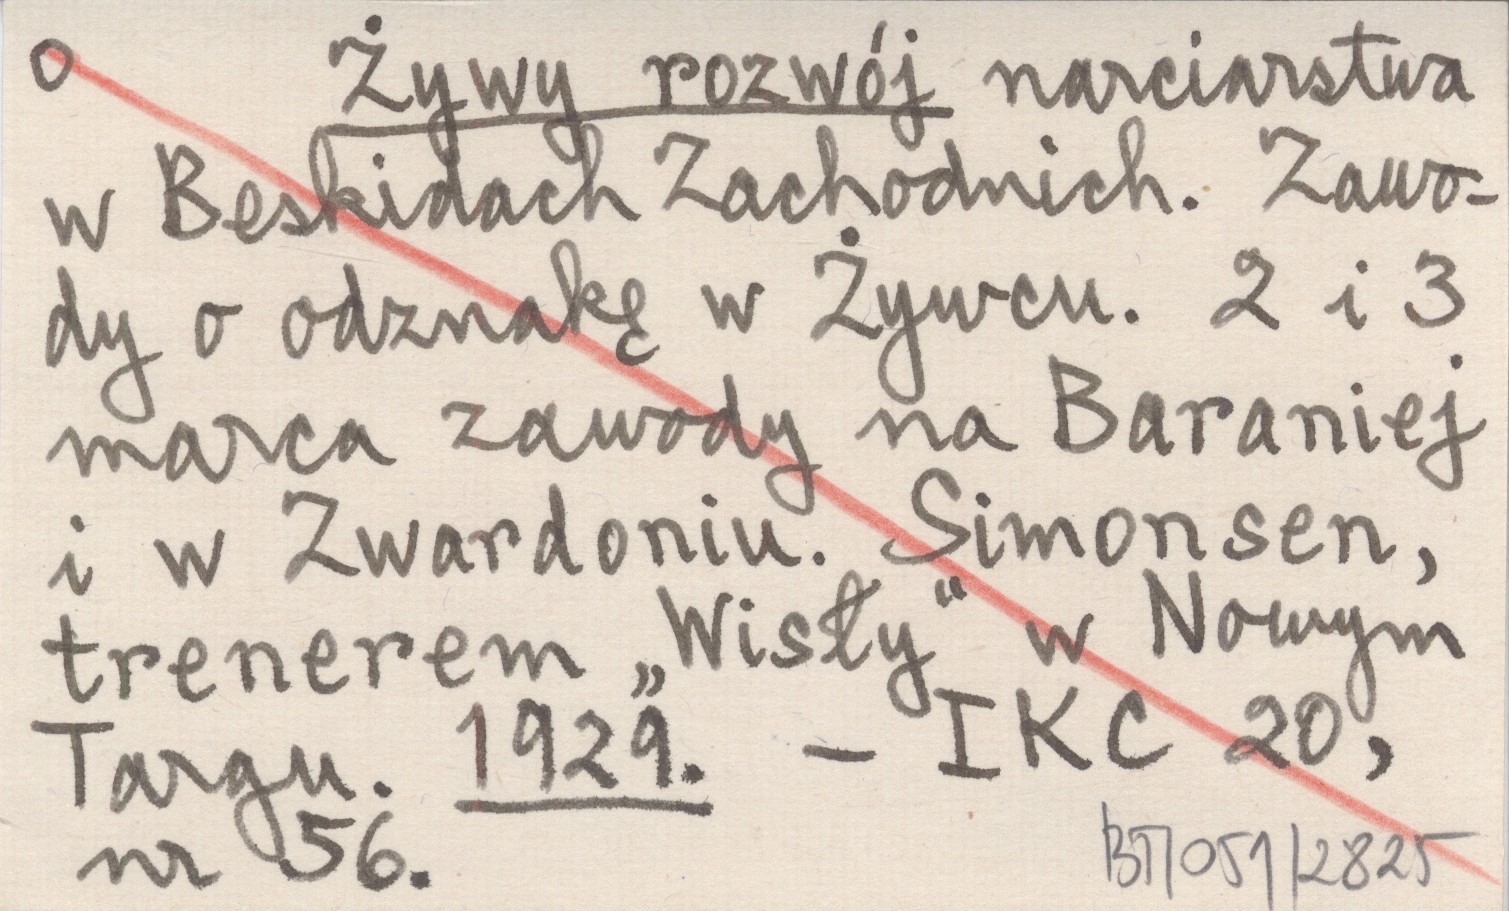 o Żywy rozwój narciarstwa
w Beskidach Zachodnich. Zawo-
dy o odznakę w Żywcu. 2 i 3
marca zawody na Baraniej
i w Zwardoniu. Simonsen,
trenerem „Wisły“ w Nowym
Targu. 1929. – IKC 20,
nr 56.
BTI/051/2825